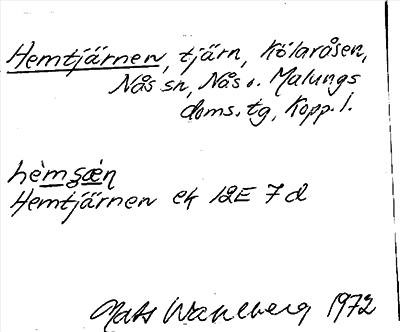 Hemtjärnen, tjärn, Kölaråsen,
Nås sn, Nås o. Malungs
doms. tg, Kopp. l.
hèmʂæ̀n
Hemtjärnen ek 12E 7d
Mats Wahlberg 1972